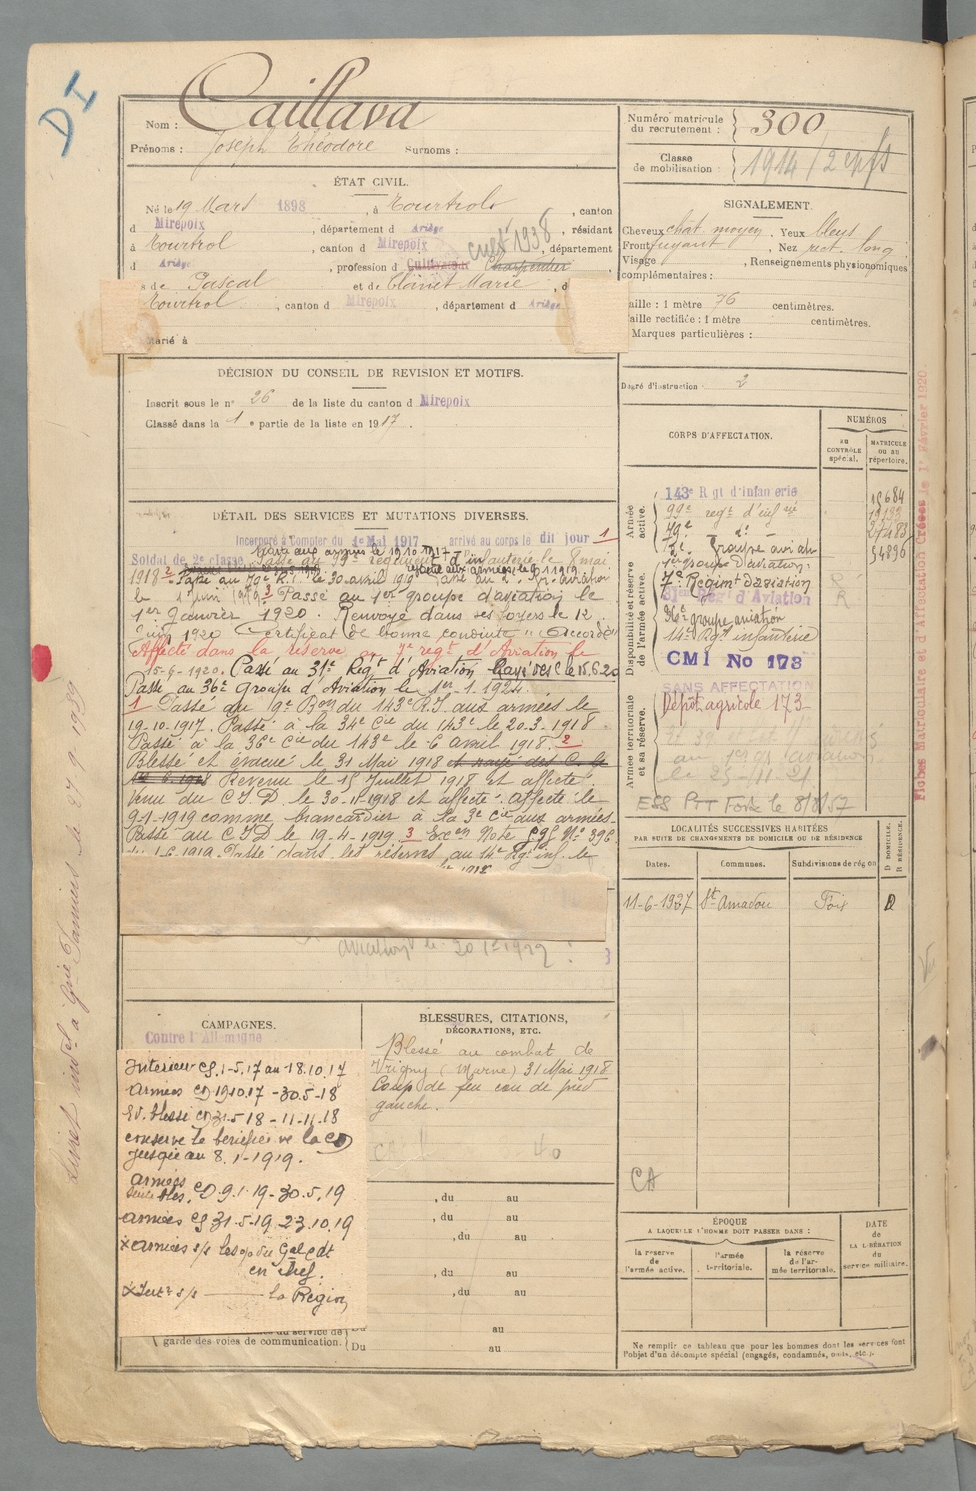 DI
Nom : Caillava
Prénoms : Joseph Théodore Surnoms :
Numéro matricule du recrutement : 300
Classe de mobilisation : 1914 / 2 enfts
ÉTAT CIVIL.
Né le 19 Mars 1898, à Tourtrol, canton
d Mirepoix, département d Ariège, résidant
à Tourtrol, canton d Mirepoix, département
d Ariège, profession d Cultivateur Charpentier
cult 1938
de Pascal et de Clanet Marie
Tourtrol, canton d Mirepoix, département d Ariège
Marié à
SIGNALEMENT.
Cheveux chât moyen, Yeux bleus
Front fuyant, Nez rect. long
Visage , Renseignements physionomiques
complémentaires :
Taille : 1 mètre 76 centimètres.
Taille rectifiée : 1 mètre centimètres.
Marques particulières :
Degré d'instruction : 2
DÉCISION DU CONSEIL DE REVISION ET MOTIFS.
Inscrit sous le n° 26 de la liste du canton d Mirepoix
Classé dans la 1e partie de la liste en 1917.
DÉTAIL DES SERVICES ET MUTATIONS DIVERSES.
Incorporé à compter du 1er Mai 1917 arrivé au corps le dit jour 1
Soldat de 2e classe Passé au 99e régiment d'infanterie le 8 mai
1918 2 Passé au 79e R.I. le 30 avril 1919 Passé au 2e Gr. aviation
le 1er juin 1919 3 Passé au 1er groupe d'aviation le
1er Janvier 1920. Renvoyé dans ses foyers le 12
juin 1920 Certificat de bonne conduite "Accordé"
Affecté dans la réserve au 7e regt d'Aviation le
15-6-1920. Passé au 31e Regt d'Aviation Rayé des C le 15.6.20
Passé au 36e Groupe d'Aviation le 1er-1-1924.
1 Passé au 9e Bon du 143e R.I. aux armées le
19-10-1917. Passé à la 34e Cie du 143e le 20.3.1918.
Passé à la 36e Cie du 143e le 6 avril 1918. 2
Blessé et évacué le 31 Mai 1918 et rayé des C. le
Revenu le 15 Juillet 1918 et affecté.
Venu du C.I.D. le 30-11-1918 et affecté. Affecté le
9-1-1919 comme brancardier à la 3e Cie aux armées.
Passé au C.I.D le 19-4-1919. 3 Exon Note GQG No 396
1-6-1919. Passé dans les réserves au 14e Rgt inf. le
CORPS D'AFFECTATION.
NUMÉROS
AU CONTRÔLE spécial.
MATRICULE ou au répertoire.
Armée active.
143e Rgt d'Infanterie 15684
99e regt d'infrie
79e d°
2e Groupe aviation 54896
Disponibilité et réserve de l'armée active.
1er groupe d'aviation
7e Regimt d'aviation R
31e Régt d'Aviation R
36e groupe aviation
14e Regt infanterie
CMI No 173
Armée territoriale et sa réserve.
SANS AFFECTATION
Dépôt agricole 173
ESS PTT Foix le 8/8/57
Fiches Matriculaire et d'Affectation Créées le 1er Février 1920.
LOCALITÉS SUCCESSIVES HABITÉES
PAR SUITE DE CHANGEMENTS DE DOMICILE OU DE RÉSIDENCE
Dates. Communes. Subdivisions de région D DOMICILE. R RÉSIDENCE.
11-6-1937 St Amadou Foix D
CA
CAMPAGNES.
Contre l'Allemagne
Intérieur CS. 1-5.17 au 18.10.17
Armées CD 19.10.17 - 30.5-18
Ev. blessé CD 31-5 18 - 11-11-18
conserve le bénéfice de la CD
jusqu'au 8.1-1919.
Armées CD 9.1.19 - 30.5.19
armées CS 31-5-19 23.10.19
x armées s/s les o/ du Gal Cdt
en chef.
x Intr s/s la Région
garde des voies de communication. Du au
BLESSURES, CITATIONS,
DÉCORATIONS, ETC.
Blessé au combat de
Vrigny (Marne) 31 Mai 1918
Coup de feu cou de pied
gauche.
, du au
, du au
, du au
, du au
, du au
au
Du au
ÉPOQUE
A LAQUELLE L'HOMME DOIT PASSER DANS :
la réserve de l'armée active.
l'armée territoriale.
la réserve de l'armée territoriale.
DATE de LA LIBÉRATION du service militaire.
Ne remplir ce tableau que pour les hommes dont les services font
l'objet d'un décompte spécial (engagés, condamnés, omis, etc.).